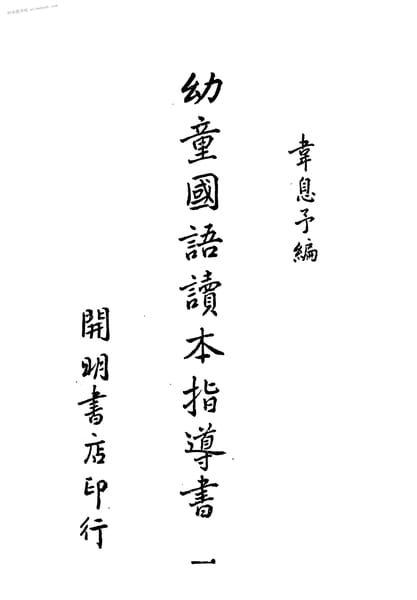 韋息予編
幼童國語讀本指導書 一
開明書店印行